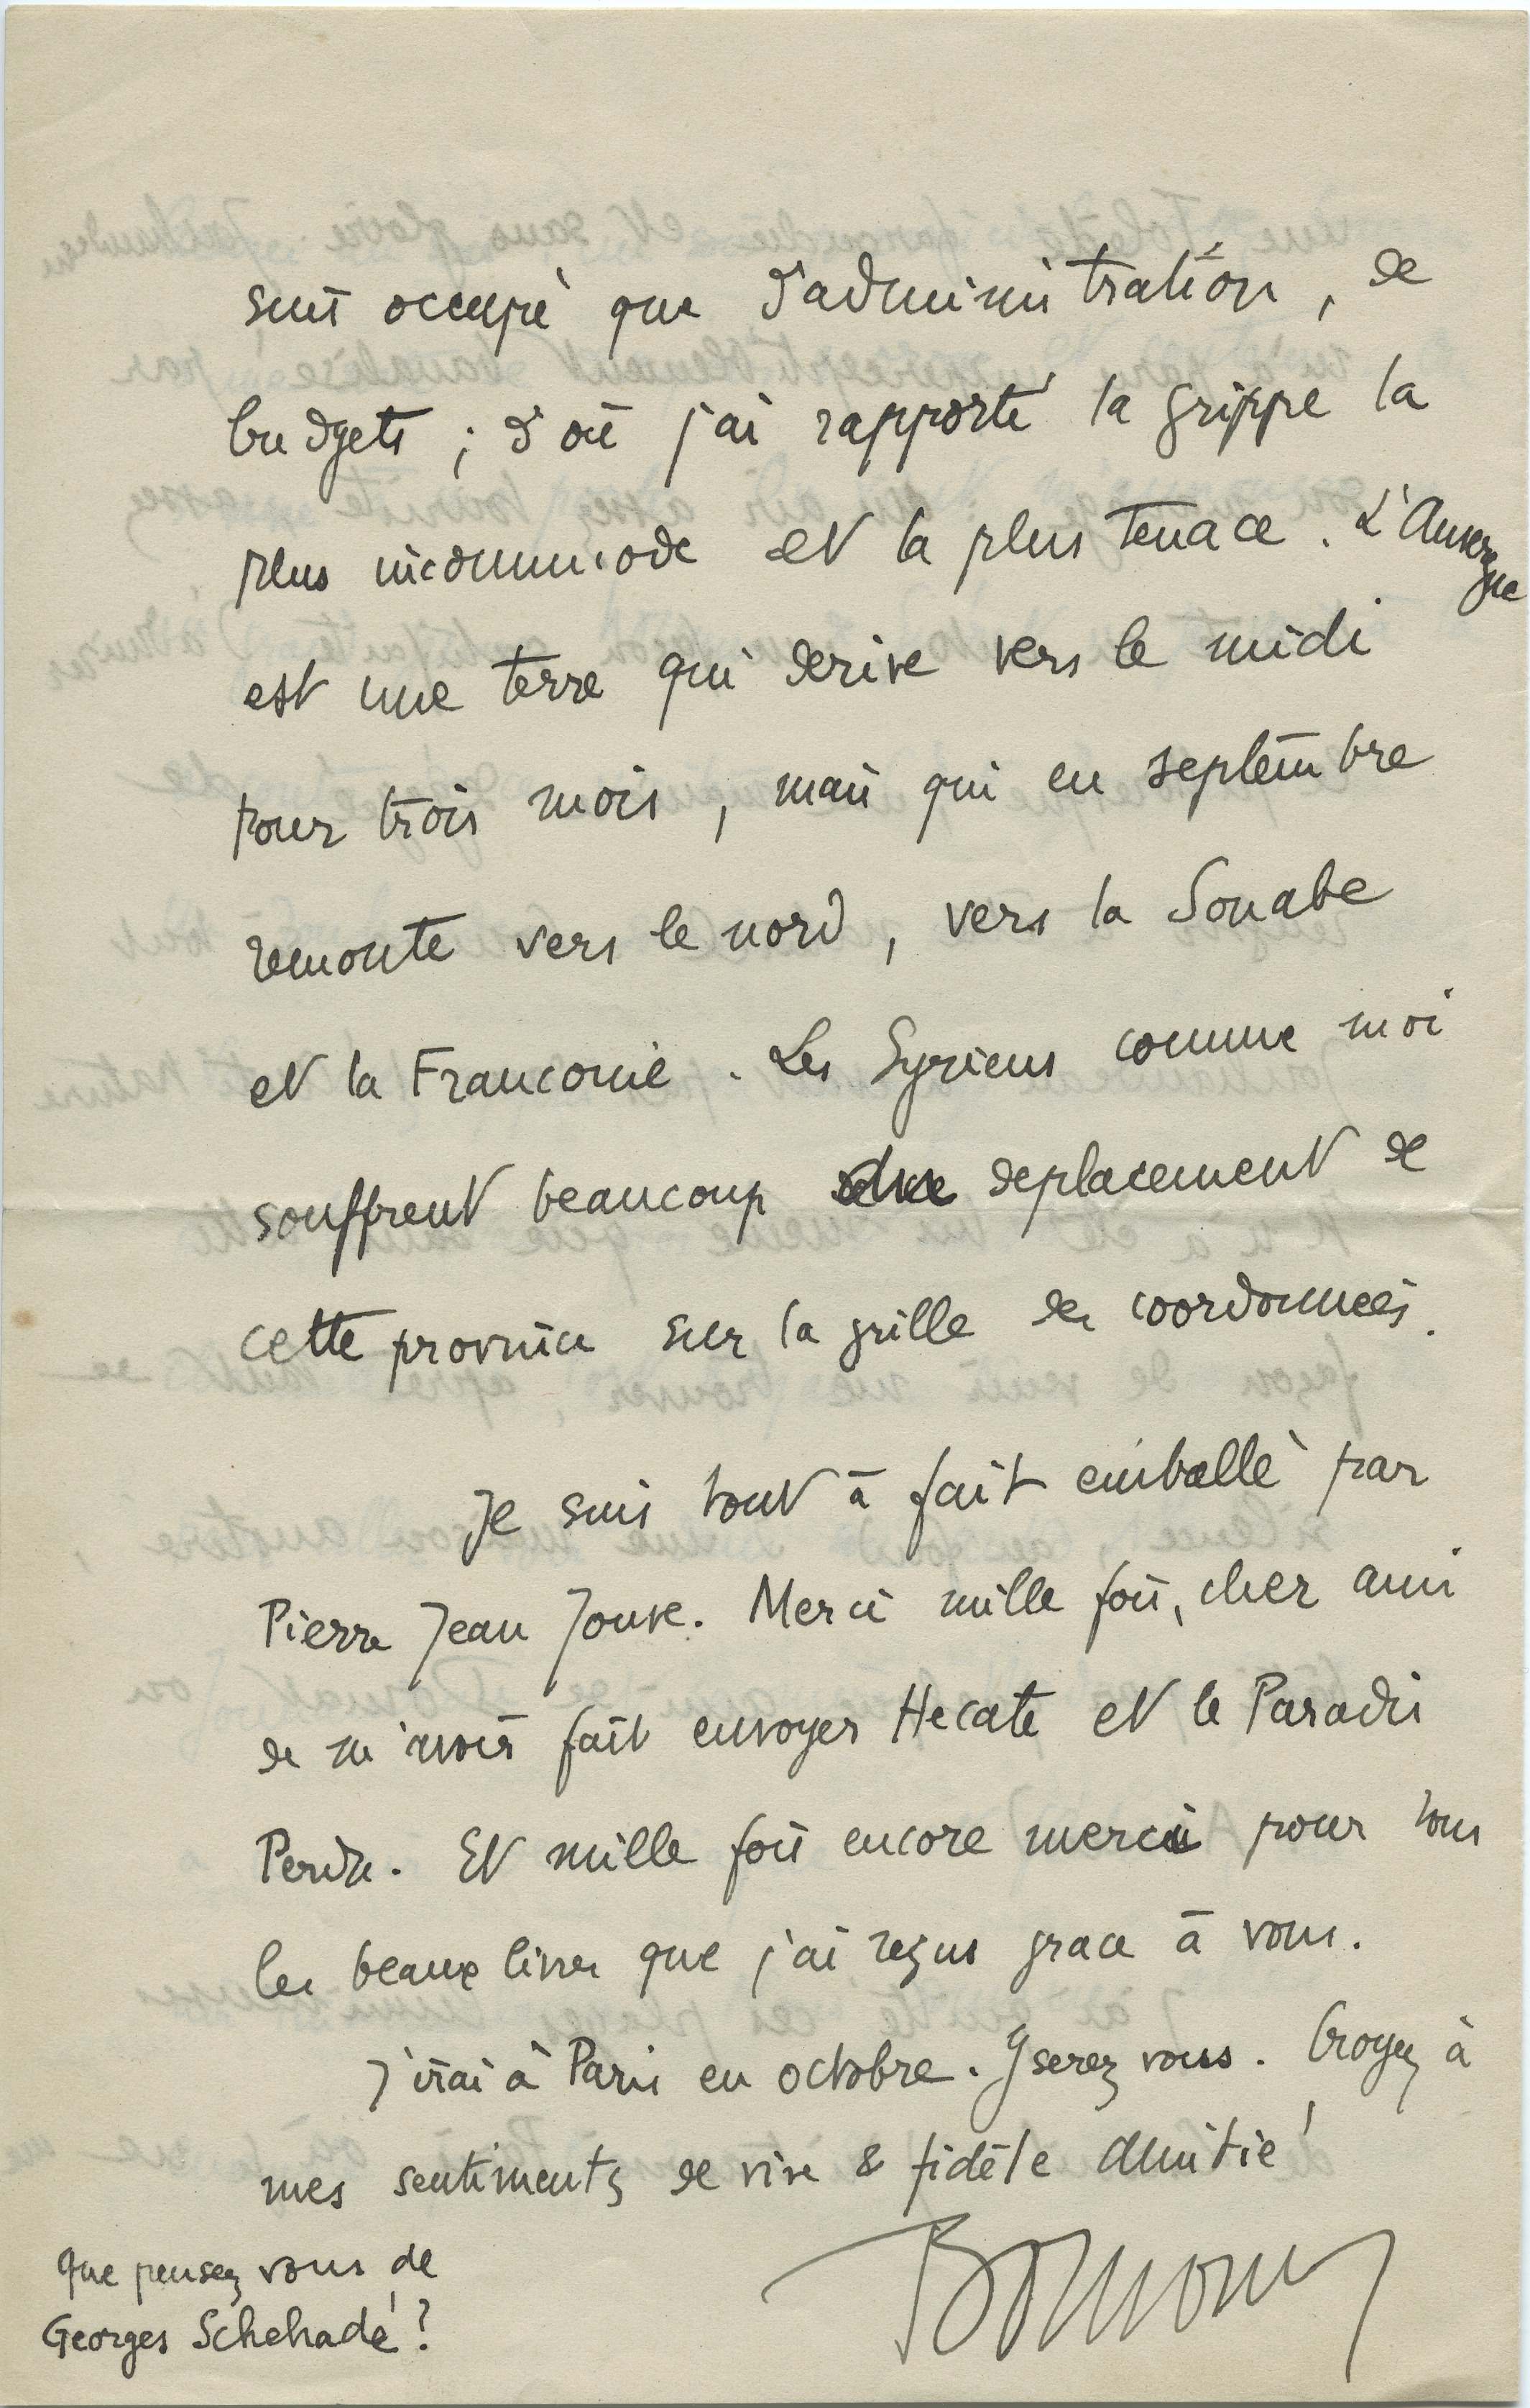 suis occupé que d'administration, de
budgets ; d'où j'ai rapporté la grippe la
plus incommode et la plus tenace. L'Auvergne
est une terre qui derive vers le midi
pour trois mois, mais qui en septembre
remonte vers le nord, vers la Souabe
et la Franconie. Les Syriens comme moi
souffrent beaucoup deplacement de
cette province sur la grille des coordonnées.
Je suis tout à fait emballé par
Pierre Jean Jouve. Merci mille fois, cher ami
de m'avoir fait envoyer Hecate et le Paradis
Perdu. Et mille fois encore merci pour tous
les beaux livres que j'ai reçus grace à vous.
J'irai à Paris en octobre. Y serez vous. Croyez à
mes sentiments de vive & fidèle amitié
Bounoure
Que pensez vous de
Georges Schehadé ?